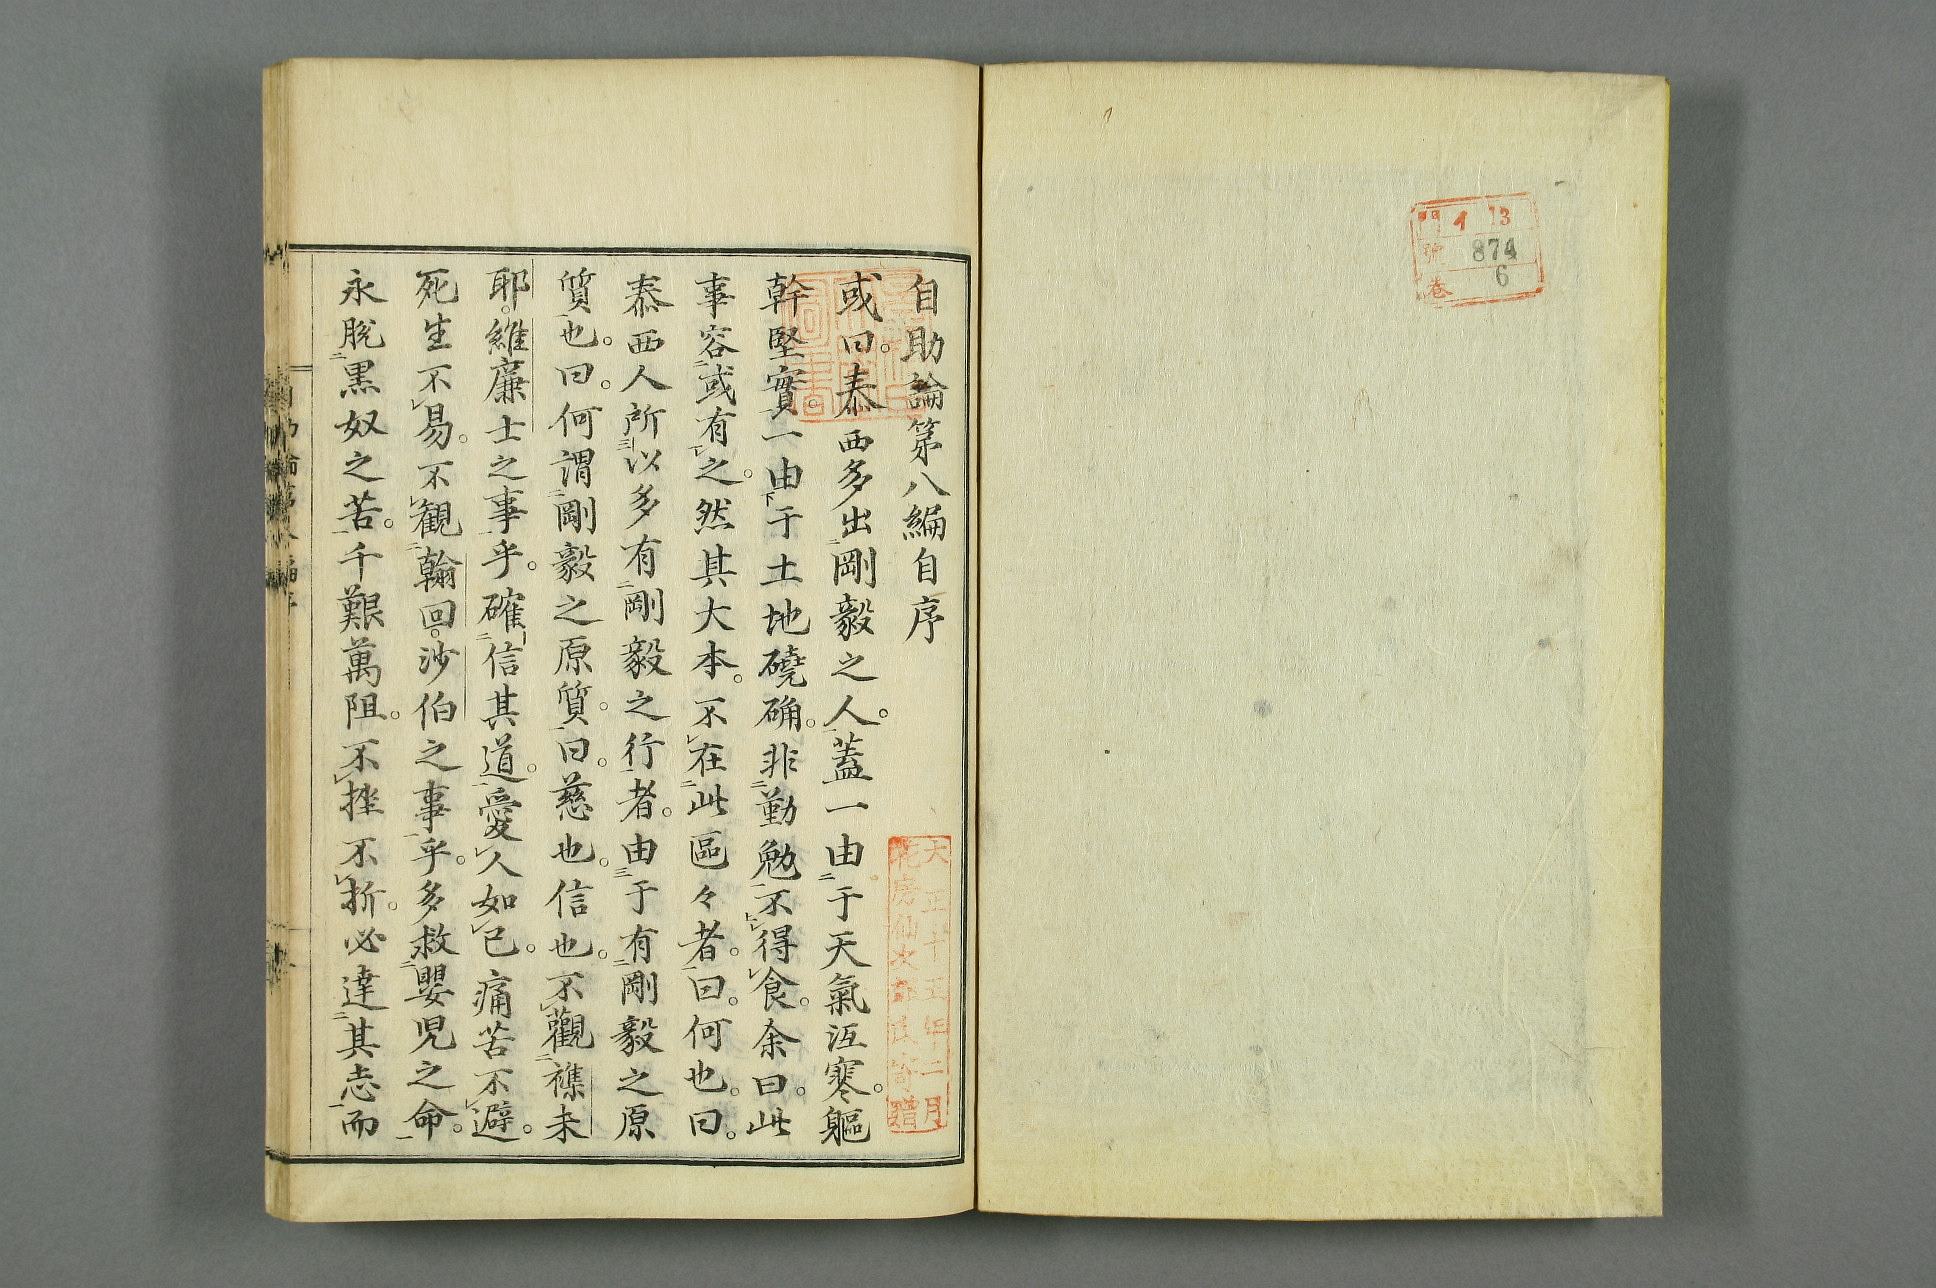 門 イ 13
號 874
卷 6
自助論第八編自序
或曰。泰西多出剛毅之人。蓋一由于天氣沍寒。軀
幹堅實。一由于土地磽确。非勤勉不得食。余曰。此
事容或有之。然其大本。不在此區々者。曰。何也。曰。
泰西人所以多有剛毅之行者。由于有剛毅之原
質也。曰。何謂剛毅之原質。曰。慈也。信也。不觀襍未
耶。維廉士之事乎。確信其道。愛人如己。痛苦不避。
死生不易。不観翰回。沙伯之事乎。多救嬰児之命。
永脫黒奴之苦。千艱萬阻。不挫不折。必達其志而
大正十五年二月
花房仙次郎氏寄贈